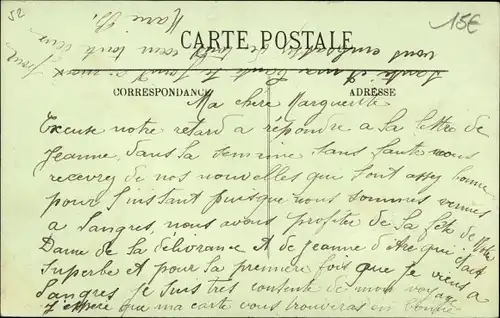 52
15€
CARTE POSTALE
CORRESPONDANCE
ADRESSE
Ma chère Marguerite
Excuse notre retard a répondre a la lettre de
Jeanne, dans la semaine sans faute vous
recevrez de nos nouvelles qui sont assez bonne
pour l'instant puisque nous sommes venues
a Langres, nous avons profiter de la fête de Notre
Dame de la délivrance et de Jeanne d'Arc qui était
superbe et pour la première fois que je viens a
Langres je suis très contente de mon voyage
J'espère que ma carte vous trouveras en bonne
santé et ma tante
vous embrasse de tout cœur
Marie B.